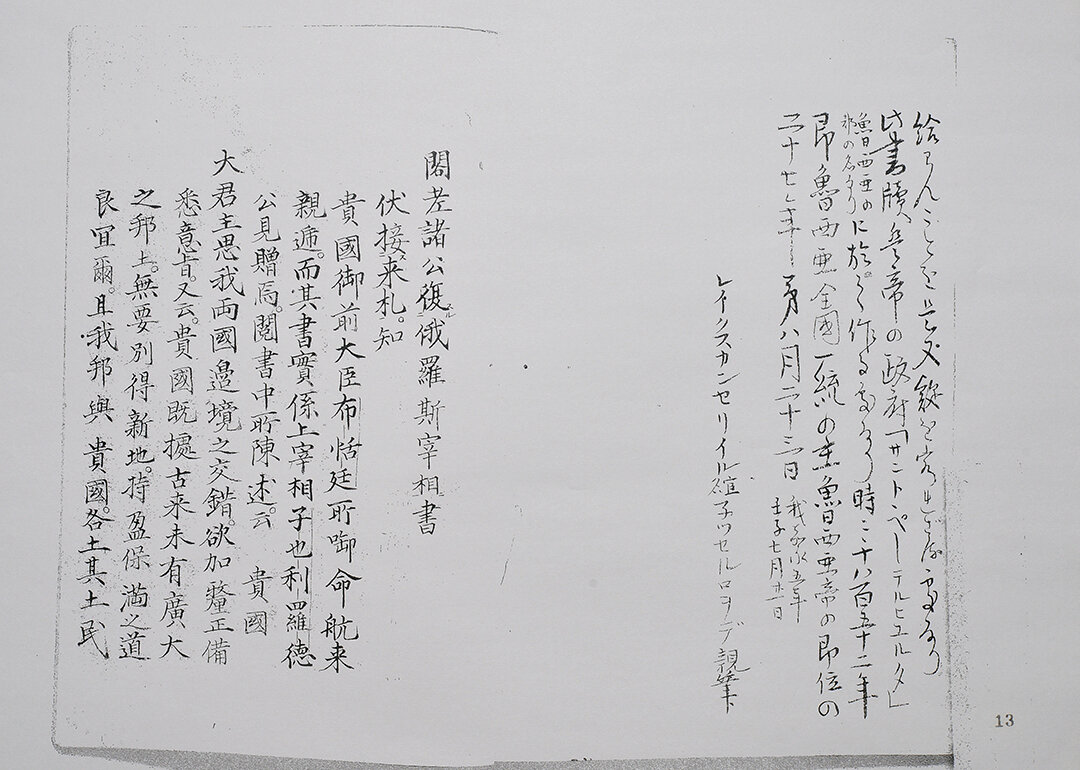 給らんことを是又疑を容れざる處なり
此書牘兵帝の政府「サントペーテルヒユルタ」
魯西亜の都の名なりに於て作る處なり時ニ千八百五十二年
即魯西亜全國一統の主魯西亜帝の即位の
二十七年第八月二十三日 我嘉永五年壬子七月廿一日
レイクスカンセリイル ツセルロヲデ親筆
閣老諸公復俄羅斯宰相書
伏接来札。知
貴國御前大臣布恬廷所啣命航来
親逓。而其書實係上宰相子也利羅德
公見贈焉。閲書中所陳述。云 貴國
大君主思我両國邉境之交錯。欲加釐正備
悉意旨。又云。貴國既據古来未有廣大
之邦土。無要別得新地。持盈保満之道
良宜爾。且我邦與 貴國。各土其土民
13